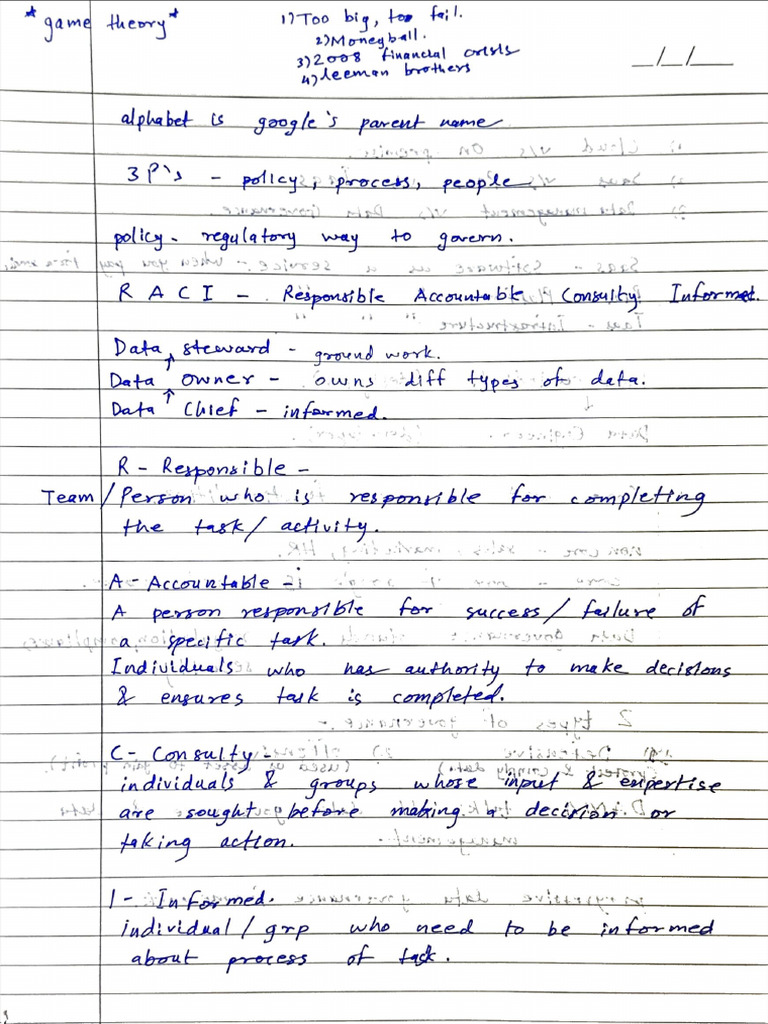 *game theory*
1) Too big, too fail.
2) Moneyball.
3) 2008 financial crisis
4) leeman brothers
__/__/____
alphabet is google's parent name
3 P's - policy, process, people
policy - regulatory way to govern.
R A C I - Responsible Accountable Consulty Informed.
Data steward - ground work.
↑
Data owner - owns diff types of data.
↑
Data Chief - informed.
R - Responsible -
Team / Person who is responsible for completing
the task / activity.
A - Accountable -
A person responsible for success / failure of
a specific task.
Individuals who has authority to make decisions
& ensures task is completed.
C - Consulty -
individuals & groups whose input & expertise
are sought before making a decision or
taking action.
I - Informed.
individual / grp who need to be informed
about process of task.